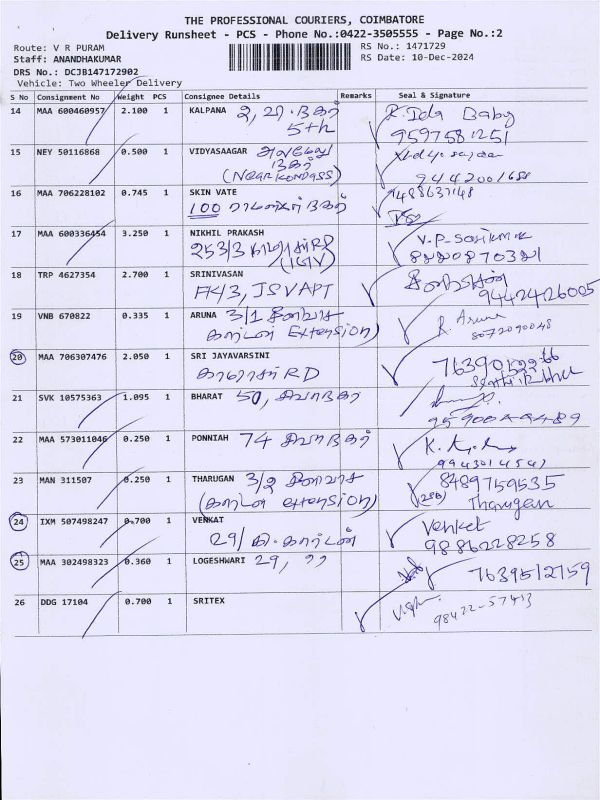 THE PROFESSIONAL COURIERS, COIMBATORE
Delivery Runsheet - PCS - Phone No.:0422-3505555 - Page No.:2
Route: V R PURAM RS No.: 1471729
Staff: ANANDHAKUMAR RS Date: 10-Dec-2024
DRS No.: DCJB147172902
Vehicle: Two Wheeler Delivery
S No Consignment No Weight PCS Consignee Details Remarks Seal & Signature
14 MAA 600460957 2.100 1 KALPANA 2, வி. நகர் R. Ida Baby
5th 9597581251
15 NEY 50116868 0.500 1 VIDYASAAGAR
நகர்
(Near Kompass) 9442001686
16 MAA 706228102 0.745 1 SKIN VATE 9488637148
100 நகர்
17 MAA 600336454 3.250 1 NIKHIL PRAKASH V.P-Sasikumar
253/3 காமராசர் RD 8220870321
(IGTV)
18 TRP 4627354 2.700 1 SRINIVASAN சீனிவாசன்
F143, JSV APT 9442426005
19 VNB 670822 0.335 1 ARUNA 3/1 சீனிவாச R. Aruna
கார்டன் Extension) 8072090048
20 MAA 706307476 2.050 1 SRI JAYAVARSINI
காமராசர் RD
21 SVK 10575363 1.095 1 BHARAT 50, சிவாநகர்
22 MAA 573011046 0.250 1 PONNIAH 74 சிவாநகர்
9943014541
23 MAN 311507 0.250 1 THARUGAN 3/2 சீனிவாச 8489759535
(கார்டன் extension) Tharugan
24 IXM 507498247 0.700 1 VENKAT Venket
29/ கார்டன் 9886228258
25 MAA 302498323 0.360 1 LOGESHWARI 29, ,, 7639512159
26 DDG 17104 0.700 1 SRITEX
98422-57413